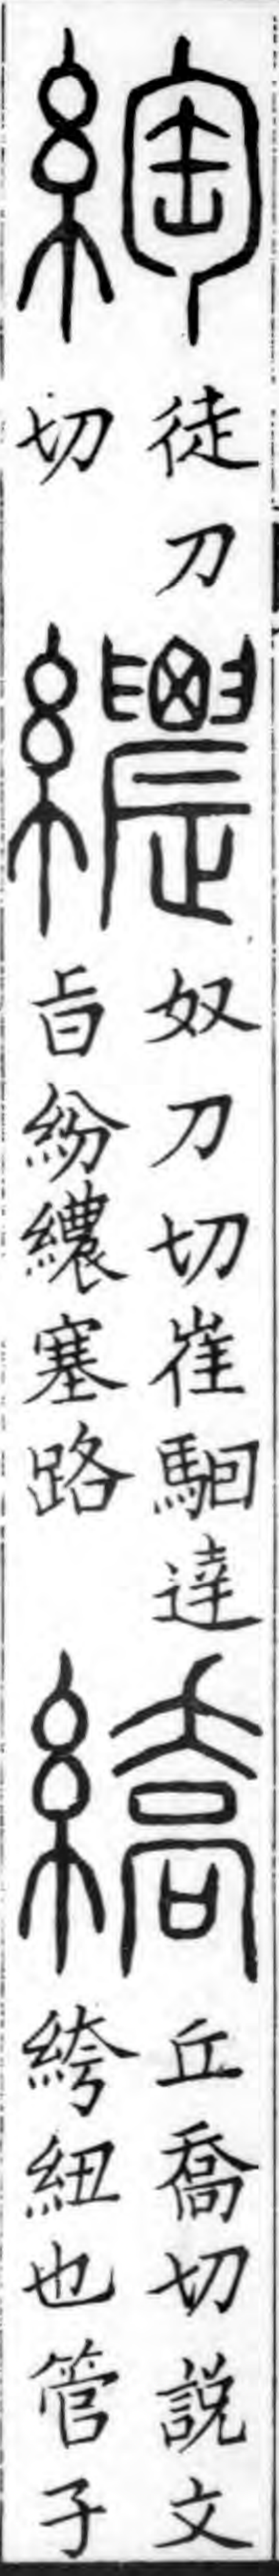 綯
徒刀
切
繷
奴刀切崔駰達
旨紛繷塞路
繑
丘喬切說文
絝紐也管子